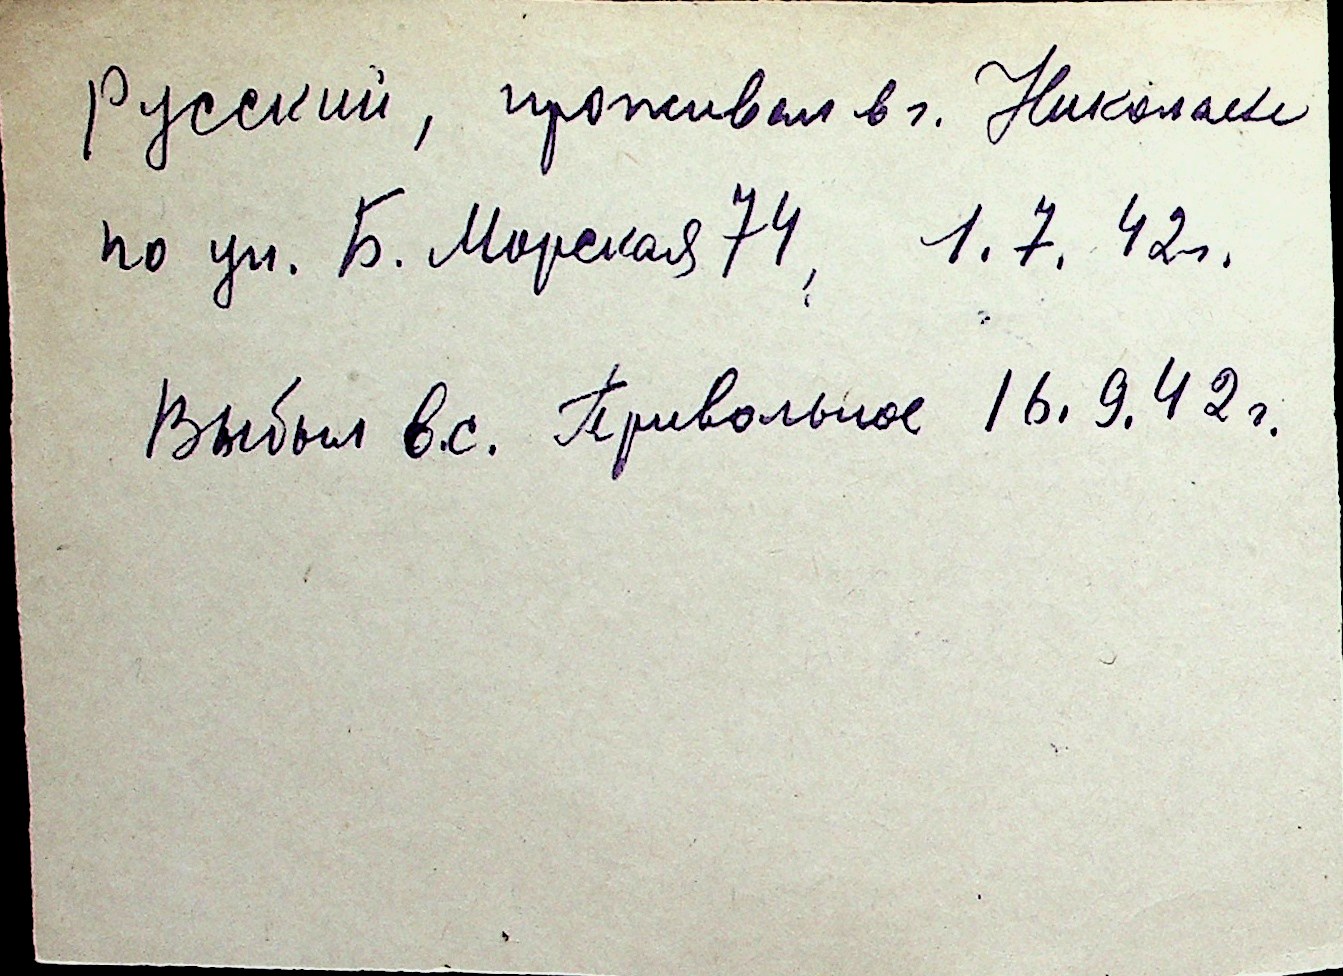 Русский, проживал в г. Николаеве
по ул. Б. Морская 74, 1.7.42г.
Выбыл в с. Привольное 16.9.42г.